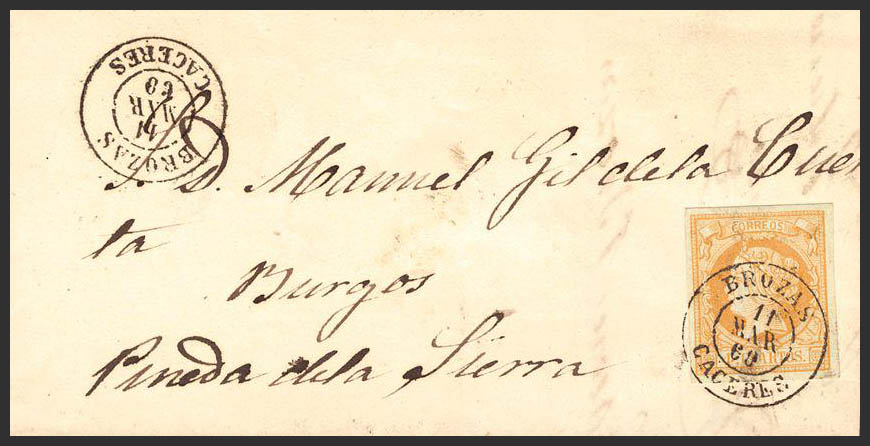 BROZAS
11
MAR
60
CACERES
S. D. Manuel Gil de la Cues
ta
Burgos
Pineda de la Sierra
CORREOS
BROZAS
11
MAR
60
CACERES